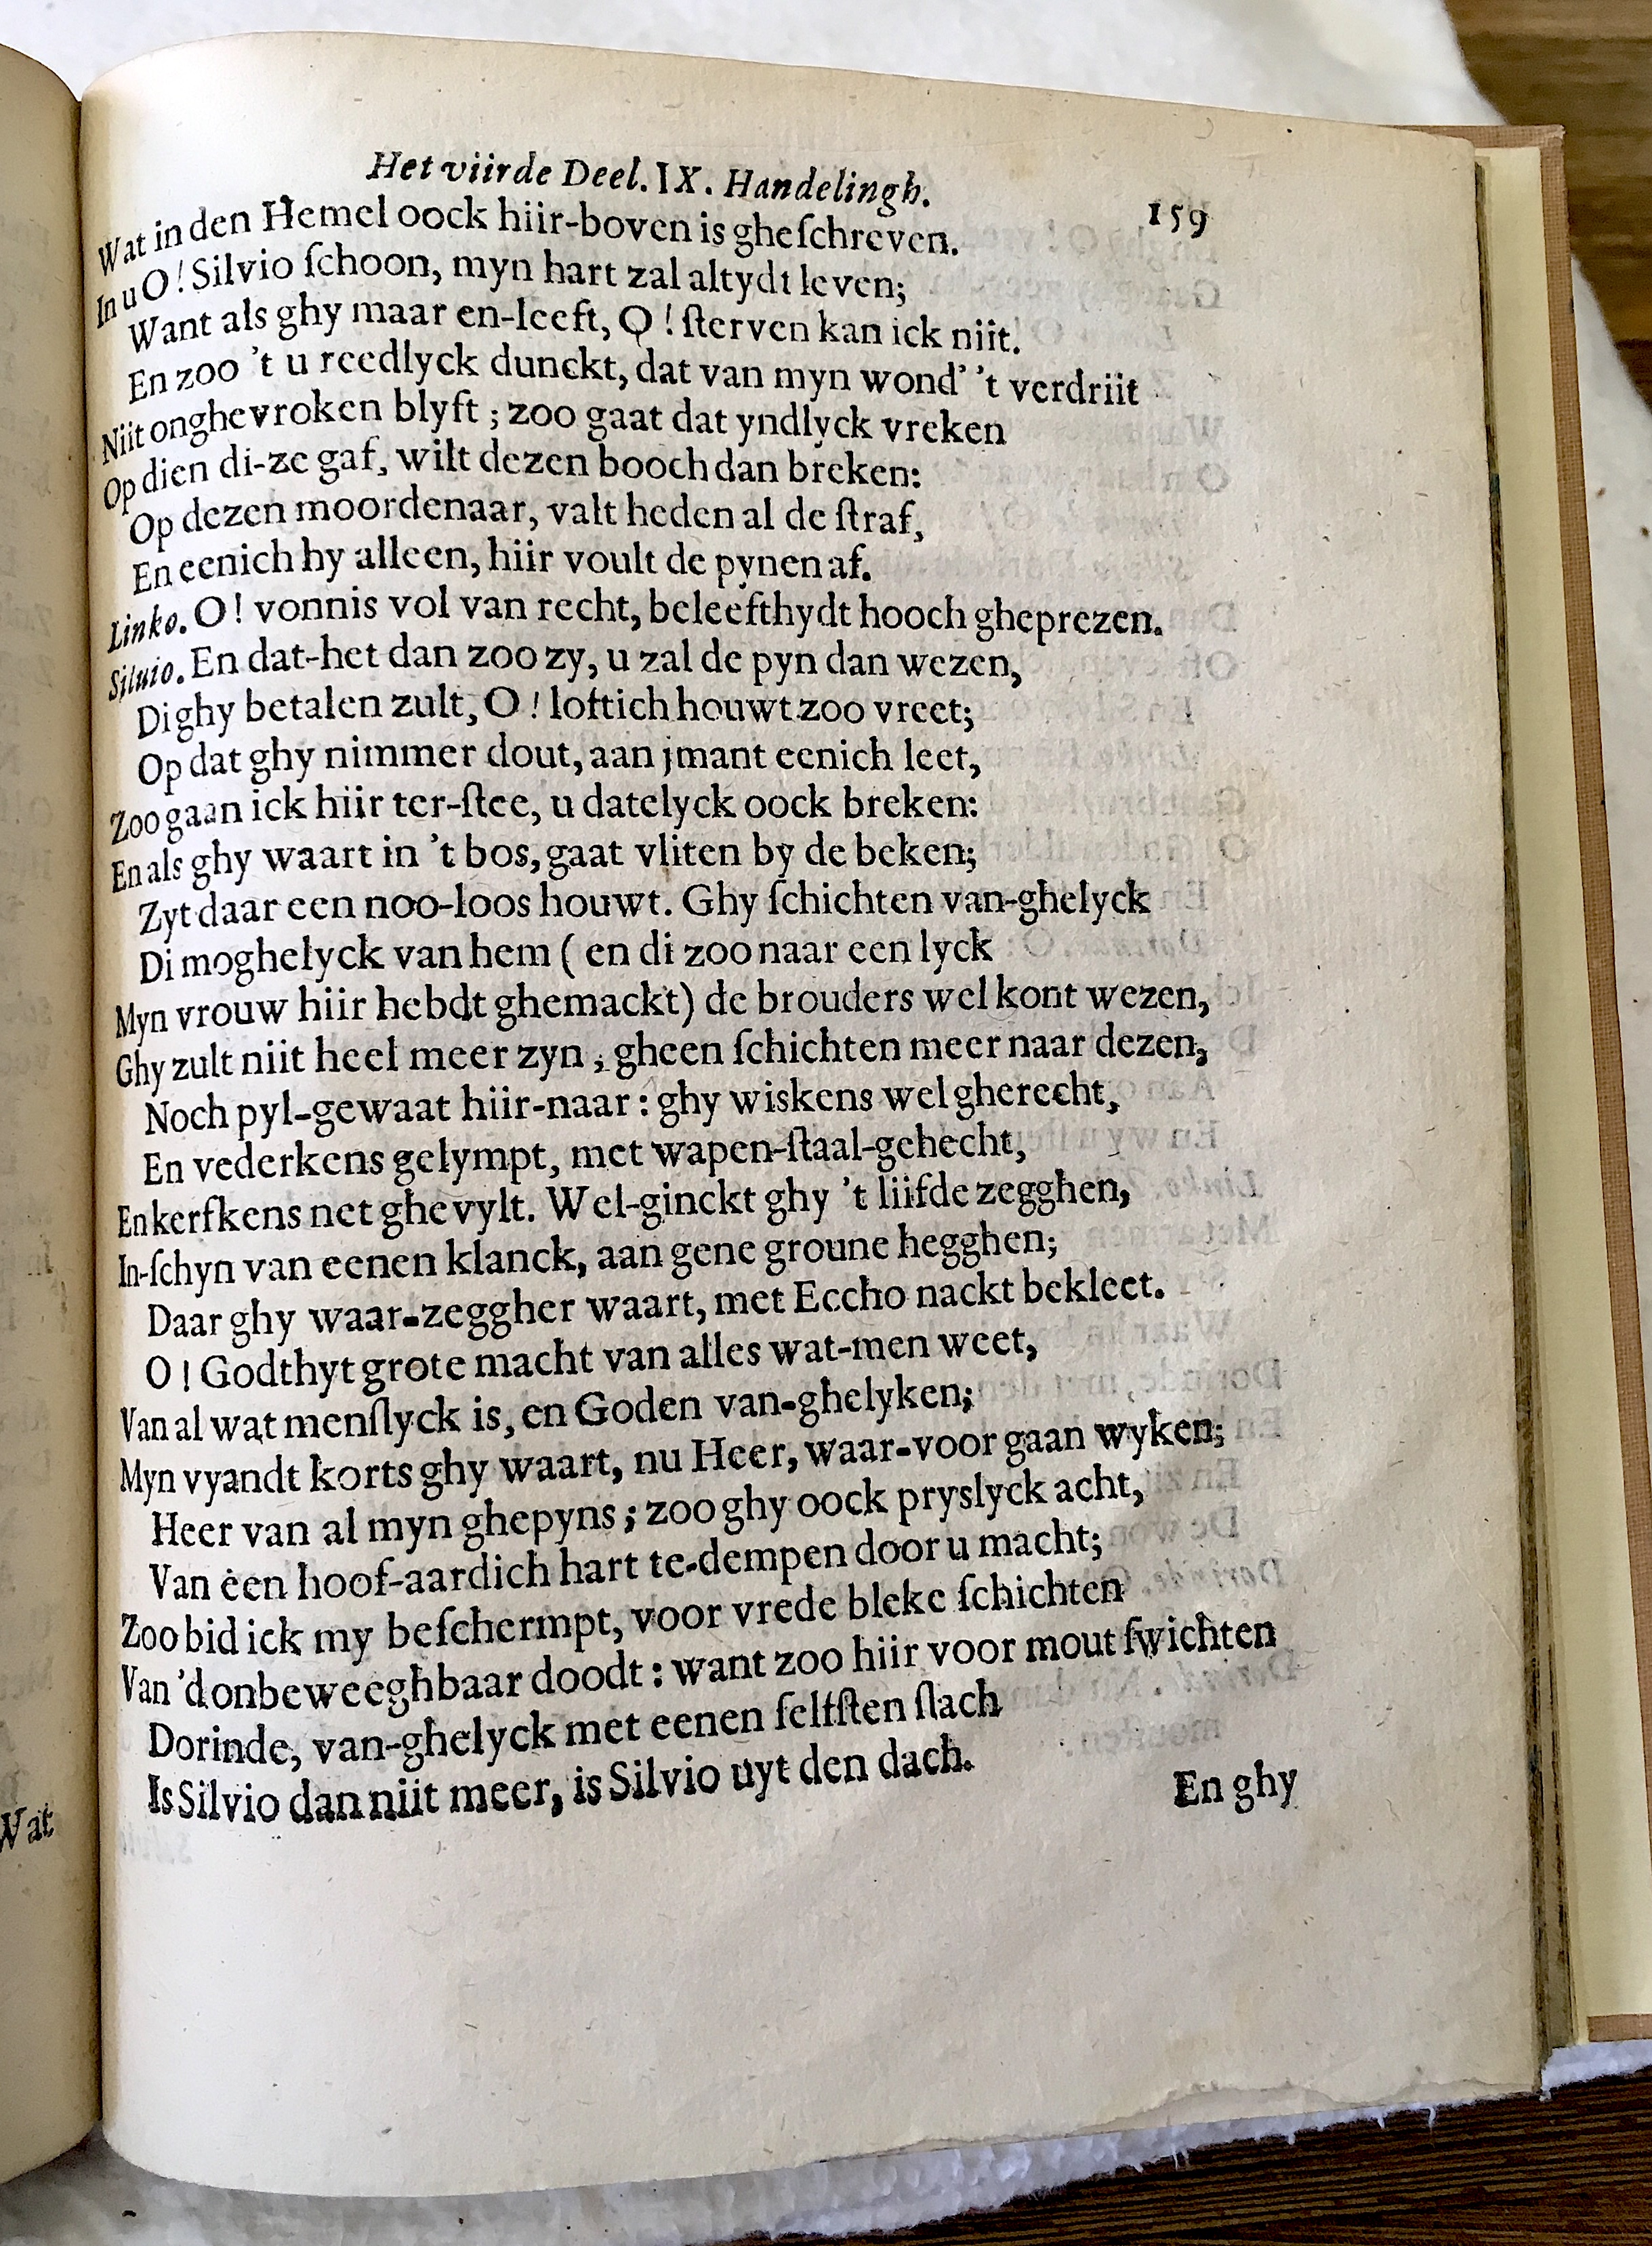 Het viirde Deel. IX. Handelingh.
159
Wat in den Hemel oock hiir-boven is gheſchreven.
In u O! Silvio ſchoon, myn hart zal altydt leven;
Want als ghy maar en-leeft, O! ſterven kan ick niit.
En zoo 't u reedlyck dunckt, dat van myn wond' 't verdriit
Niit onghevroken blyft; zoo gaat dat yndlyck vreken
Op dien di-ze gaf, wilt dezen booch dan breken:
Op dezen moordenaar, valt heden al de ſtraf,
En eenich hy alleen, hiir voult de pynen af.
Linko. O! vonnis vol van recht, beleefthydt hooch gheprezen.
Siluio. En dat-het dan zoo zy, u zal de pyn dan wezen,
Di ghy betalen zult, O! loftich houwt zoo vreet;
Op dat ghy nimmer dout, aan jmant eenich leet,
Zoo gaan ick hiir ter-ſtee, u datelyck oock breken:
En als ghy waart in 't bos, gaat vliten by de beken;
Zyt daar een noo-loos houwt. Ghy ſchichten van-ghelyck
Di moghelyck van hem ( en di zoo naar een lyck
Myn vrouw hiir hebdt ghemackt) de brouders wel kont wezen,
Ghy zult niit heel meer zyn, gheen ſchichten meer naar dezen,
Noch pyl-gewaat hiir-naar: ghy wiskens wel gherecht,
En vederkens gelympt, met wapen-ſtaal-gehecht,
En kerfkens net ghevylt. Wel-ginckt ghy 't liifde zegghen,
In-ſchyn van eenen klanck, aan gene groune hegghen;
Daar ghy waar-zeggher waart, met Eccho nackt bekleet.
O! Godthyt grote macht van alles wat-men weet,
Van al wat menſlyck is, en Goden van-ghelyken;
Myn vyandt korts ghy waart, nu Heer, waar-voor gaan wyken;
Heer van al myn ghepyns; zoo ghy oock pryslyck acht,
Van een hoof-aardich hart te-dempen door u macht;
Zoo bid ick my beſchermpt, voor vrede bleke ſchichten
Van 'donbeweeghbaar doodt: want zoo hiir voor mout ſwichten
Dorinde, van-ghelyck met eenen ſelfſten ſlach
Is Silvio dan niit meer, is Silvio uyt den dach.
En ghy
Wat